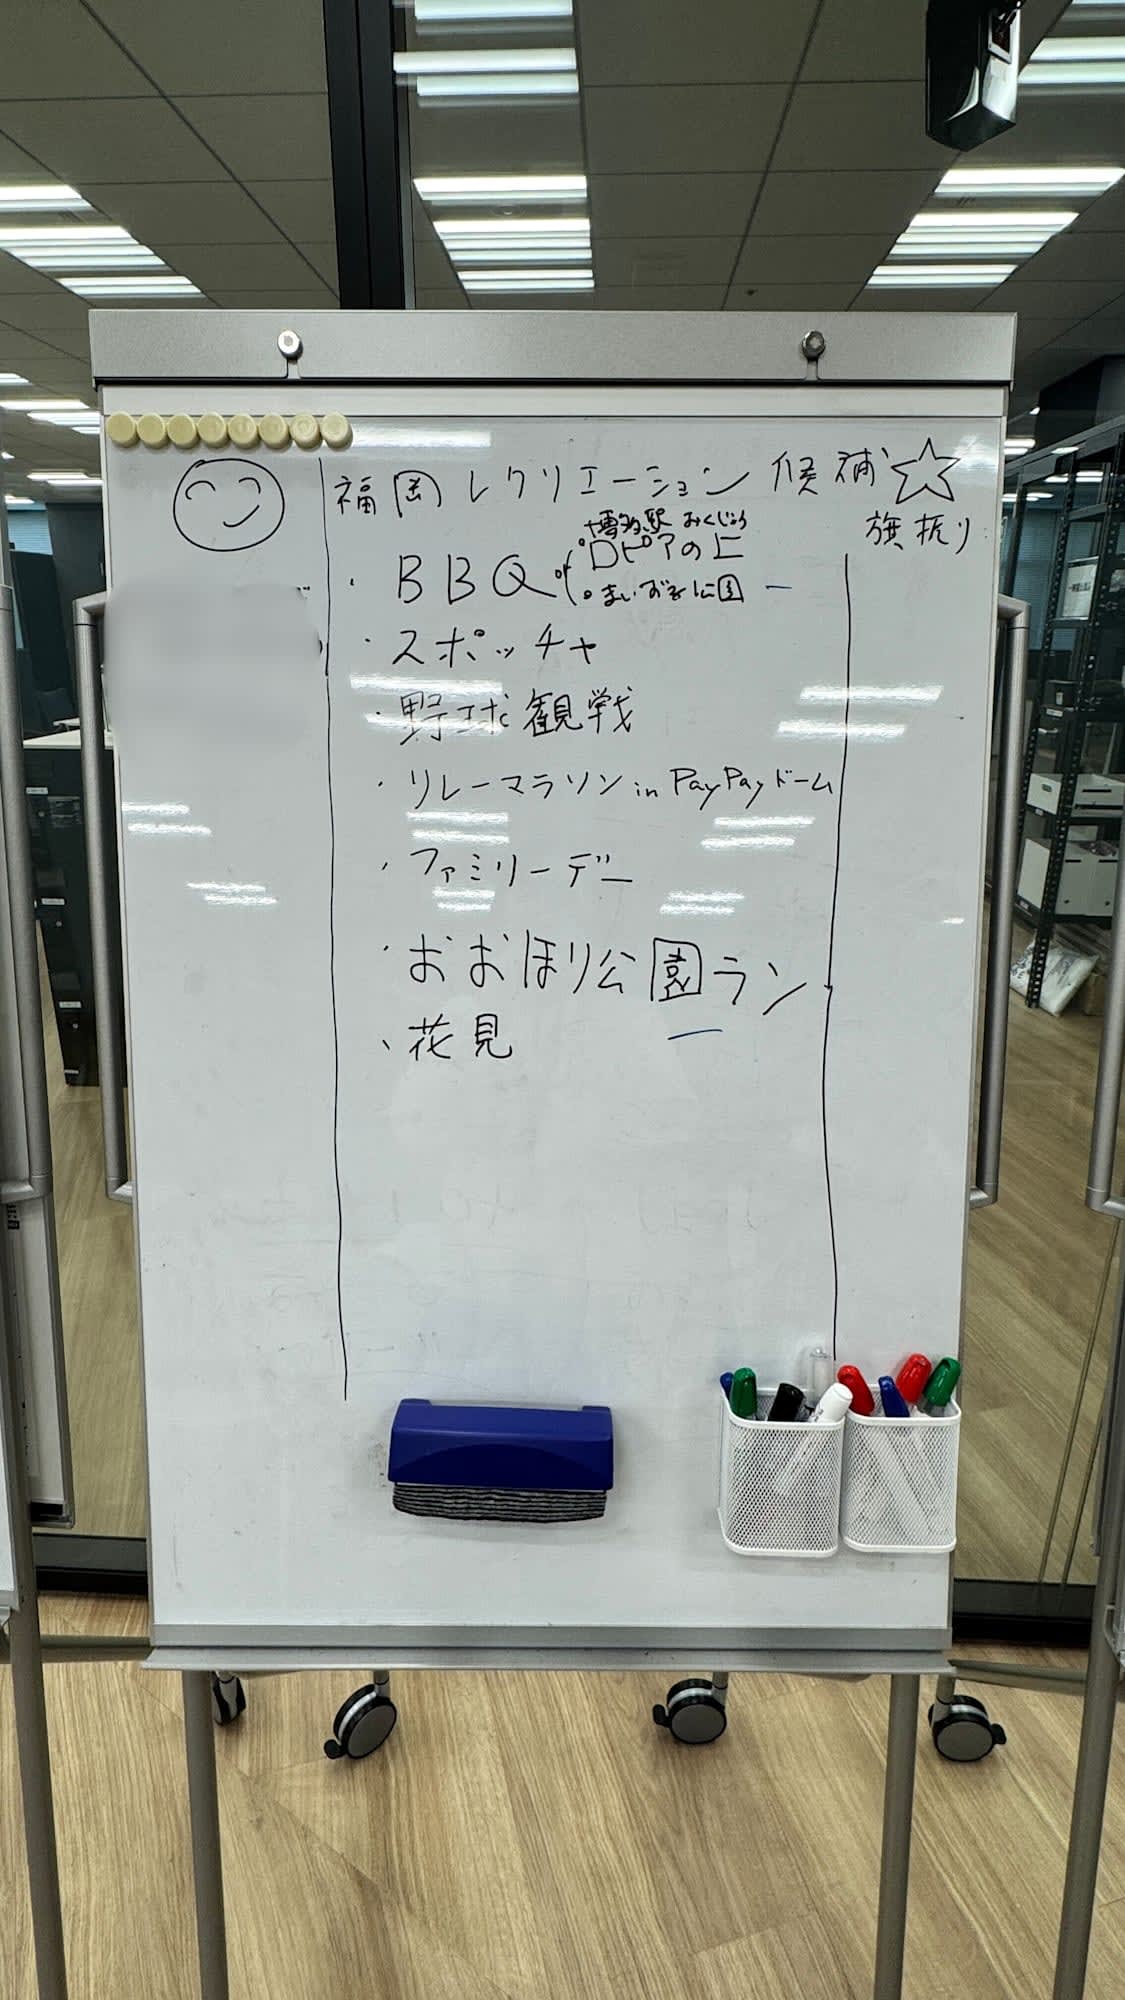 福岡レクリエーション候補☆
旗振り
博多駅 おくじょう
・BBQ or ( ・ロピアの上
・まいづる公園
・スポッチャ
・野球観戦
・リレーマラソン in PayPayドーム
・ファミリーデー
・おおほり公園ラン
・花見